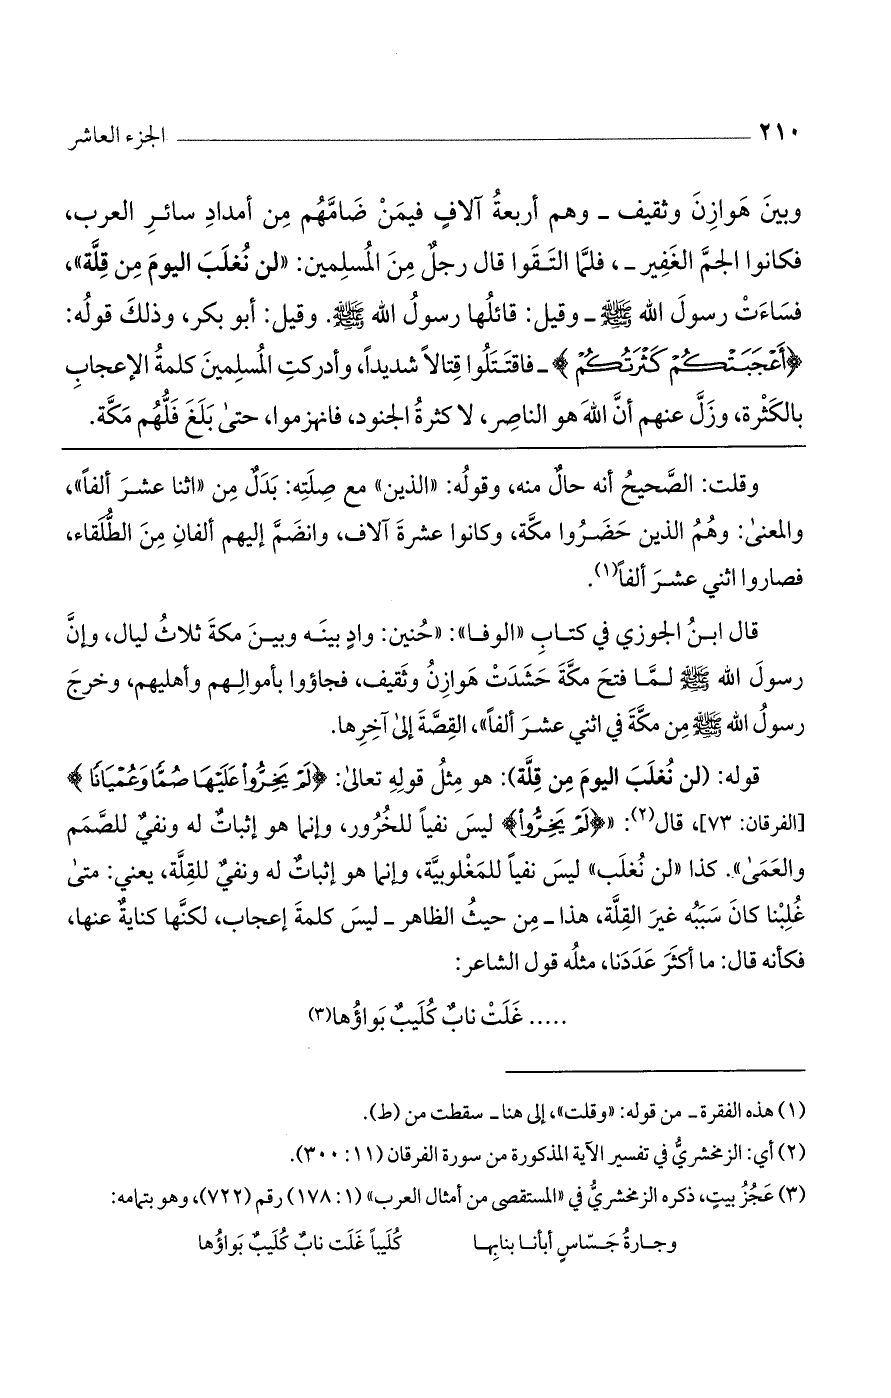 ٢١٠ الجزء العاشر
وبينَ هَوازِنَ وثقيف ـ وهم أربعةُ آلافٍ فيمَنْ ضَامَّهُم مِن أمدادِ سائرِ العرب،
فكانوا الجمَّ الغَفِير ـ، فلمَّا التَقَوا قال رجلٌ مِنَ المُسلِمين: «لن نُغلَبَ اليومَ مِن قِلَّة»،
فسَاءَتْ رسولَ الله ﷺ ـ وقيل: قائلُها رسولُ الله ﷺ. وقيل: أبو بكر، وذلكَ قولُه:
﴿أَعْجَبَتْكُمْ كَثْرَتُكُمْ﴾ ـ فاقتَتَلُوا قِتالاً شديداً، وأدركتِ المُسلِمينَ كلمةُ الإعجابِ
بالكَثْرة، وزَلَّ عنهم أنَّ اللهَ هو الناصِر، لا كثرةُ الجنود، فانهزموا، حتىٰ بَلَغَ فَلُّهُم مَكَّة.
وقلت: الصَّحيحُ أنه حالٌ منه، وقولُه: «الذين» مع صِلَتِه: بَدَلٌ مِن «اثنا عشرَ ألفاً»،
والمعنىٰ: وهُمُ الذين حَضَرُوا مكَّة، وكانوا عشرةَ آلاف، وانضَمَّ إليهم ألفانِ مِنَ الطُّلَقاء،
فصاروا اثني عشرَ ألفاً(١).
قال ابنُ الجوزي في كتابِ «الوفا»: «حُنين: وادٍ بينَه وبينَ مكةَ ثلاثُ ليال، وإنَّ
رسولَ الله ﷺ لمَّا فتحَ مكَّةَ حَشَدَتْ هَوازِنُ وثَقيف، فجاؤوا بأموالِهم وأهليهم، وخرجَ
رسولُ الله ﷺ مِن مكَّةَ في اثني عشرَ ألفاً»، القِصَّةَ إلىٰ آخِرِها.
قوله: (لن نُغلَبَ اليومَ مِن قِلَّة): هو مِثلُ قولِهِ تعالىٰ: ﴿لَمْ يَخِرُّوا۟ عَلَيْهَا صُمًّا وَعُمْيَانًا﴾
[الفرقان: ٧٣]، قال(٢): «﴿لَمْ يَخِرُّوا۟﴾ ليسَ نفياً للخُرُور، وإنما هو إثباتٌ له ونفيٌ للصَّمَم
والعَمَىٰ». كذا «لن نُغلَب» ليسَ نفياً للمَغْلوبيَّة، وإنما هو إثباتٌ له ونفيٌ للقِلَّة، يعني: متىٰ
غُلِبْنا كانَ سَبَبُه غيرَ القِلَّة، هذا ـ مِن حيثُ الظاهر ـ ليسَ كلمةَ إعجاب، لكنَّها كنايةٌ عنها،
فكأنه قال: ما أكثَرَ عَدَدَنا، مثلُه قول الشاعر:
..... غَلَتْ نابٌ كُلَيبٌ بَواؤُها(٣)
(١) هذه الفقرة ـ من قوله: «وقلت»، إلى هنا ـ سقطت من (ط).
(٢) أي: الزمخشريُّ في تفسير الآية المذكورة من سورة الفرقان (١١: ٣٠٠).
(٣) عَجُزُ بيتٍ، ذكره الزمخشريُّ في «المستقصى من أمثال العرب» (١: ١٧٨) رقم (٧٢٢)، وهو بتمامه:
وجارةُ جَسّاسٍ أبأنا بنابِها كُلَيباً غَلَت نابٌ كُلَيبٌ بَواؤُها